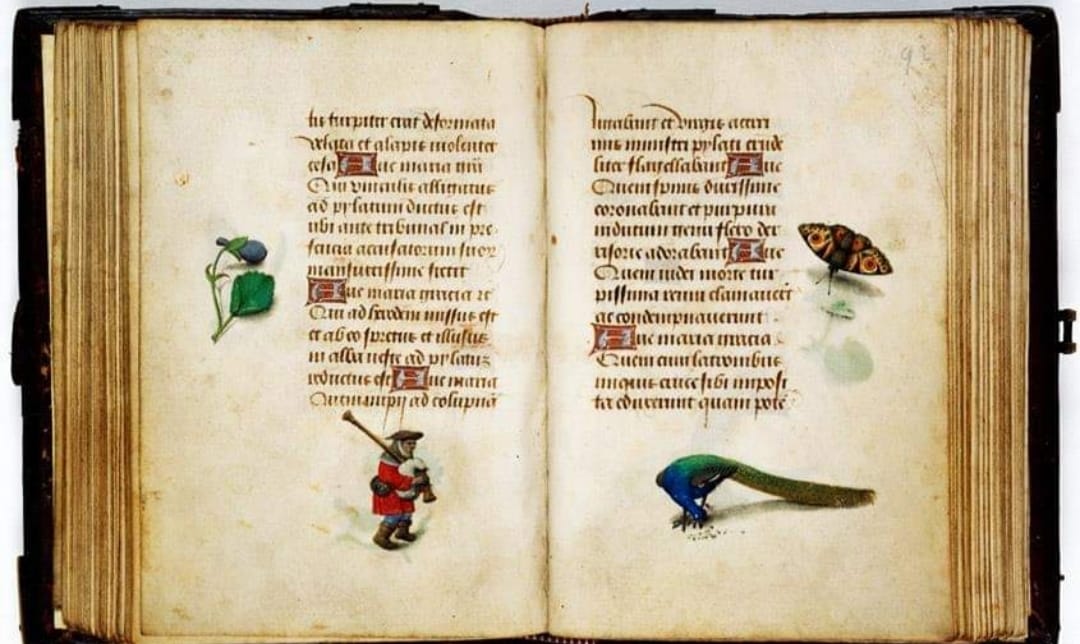 tis turpiter erat deformata
velata et alapis violenter
cesa Ave maria
Qui vinculis alligatus
ad pylatum ductus est
ubi ante tribunal in pre
sencia accusatorum suor
mansuetissime stetit
Ave maria gracia
Qui ad herodem missus est
et ab eo spretus et illusus
in alba veste ad pylatū
reductus est Ave maria
Quem impii ad colupnā
92
ligabant et virgis acerri
mis ministri pylati crude
liter flagellabant Ave
Quem spinis durissime
coronabant et purpura
indutum genu flexo der
risorie adorabant Ave
Quem iudei morte tur
pissima
ac condempnaverunt
Ave maria gracia
Quem cum latronibus
iniquis cruce sibi imposi
ta eduxerunt quam